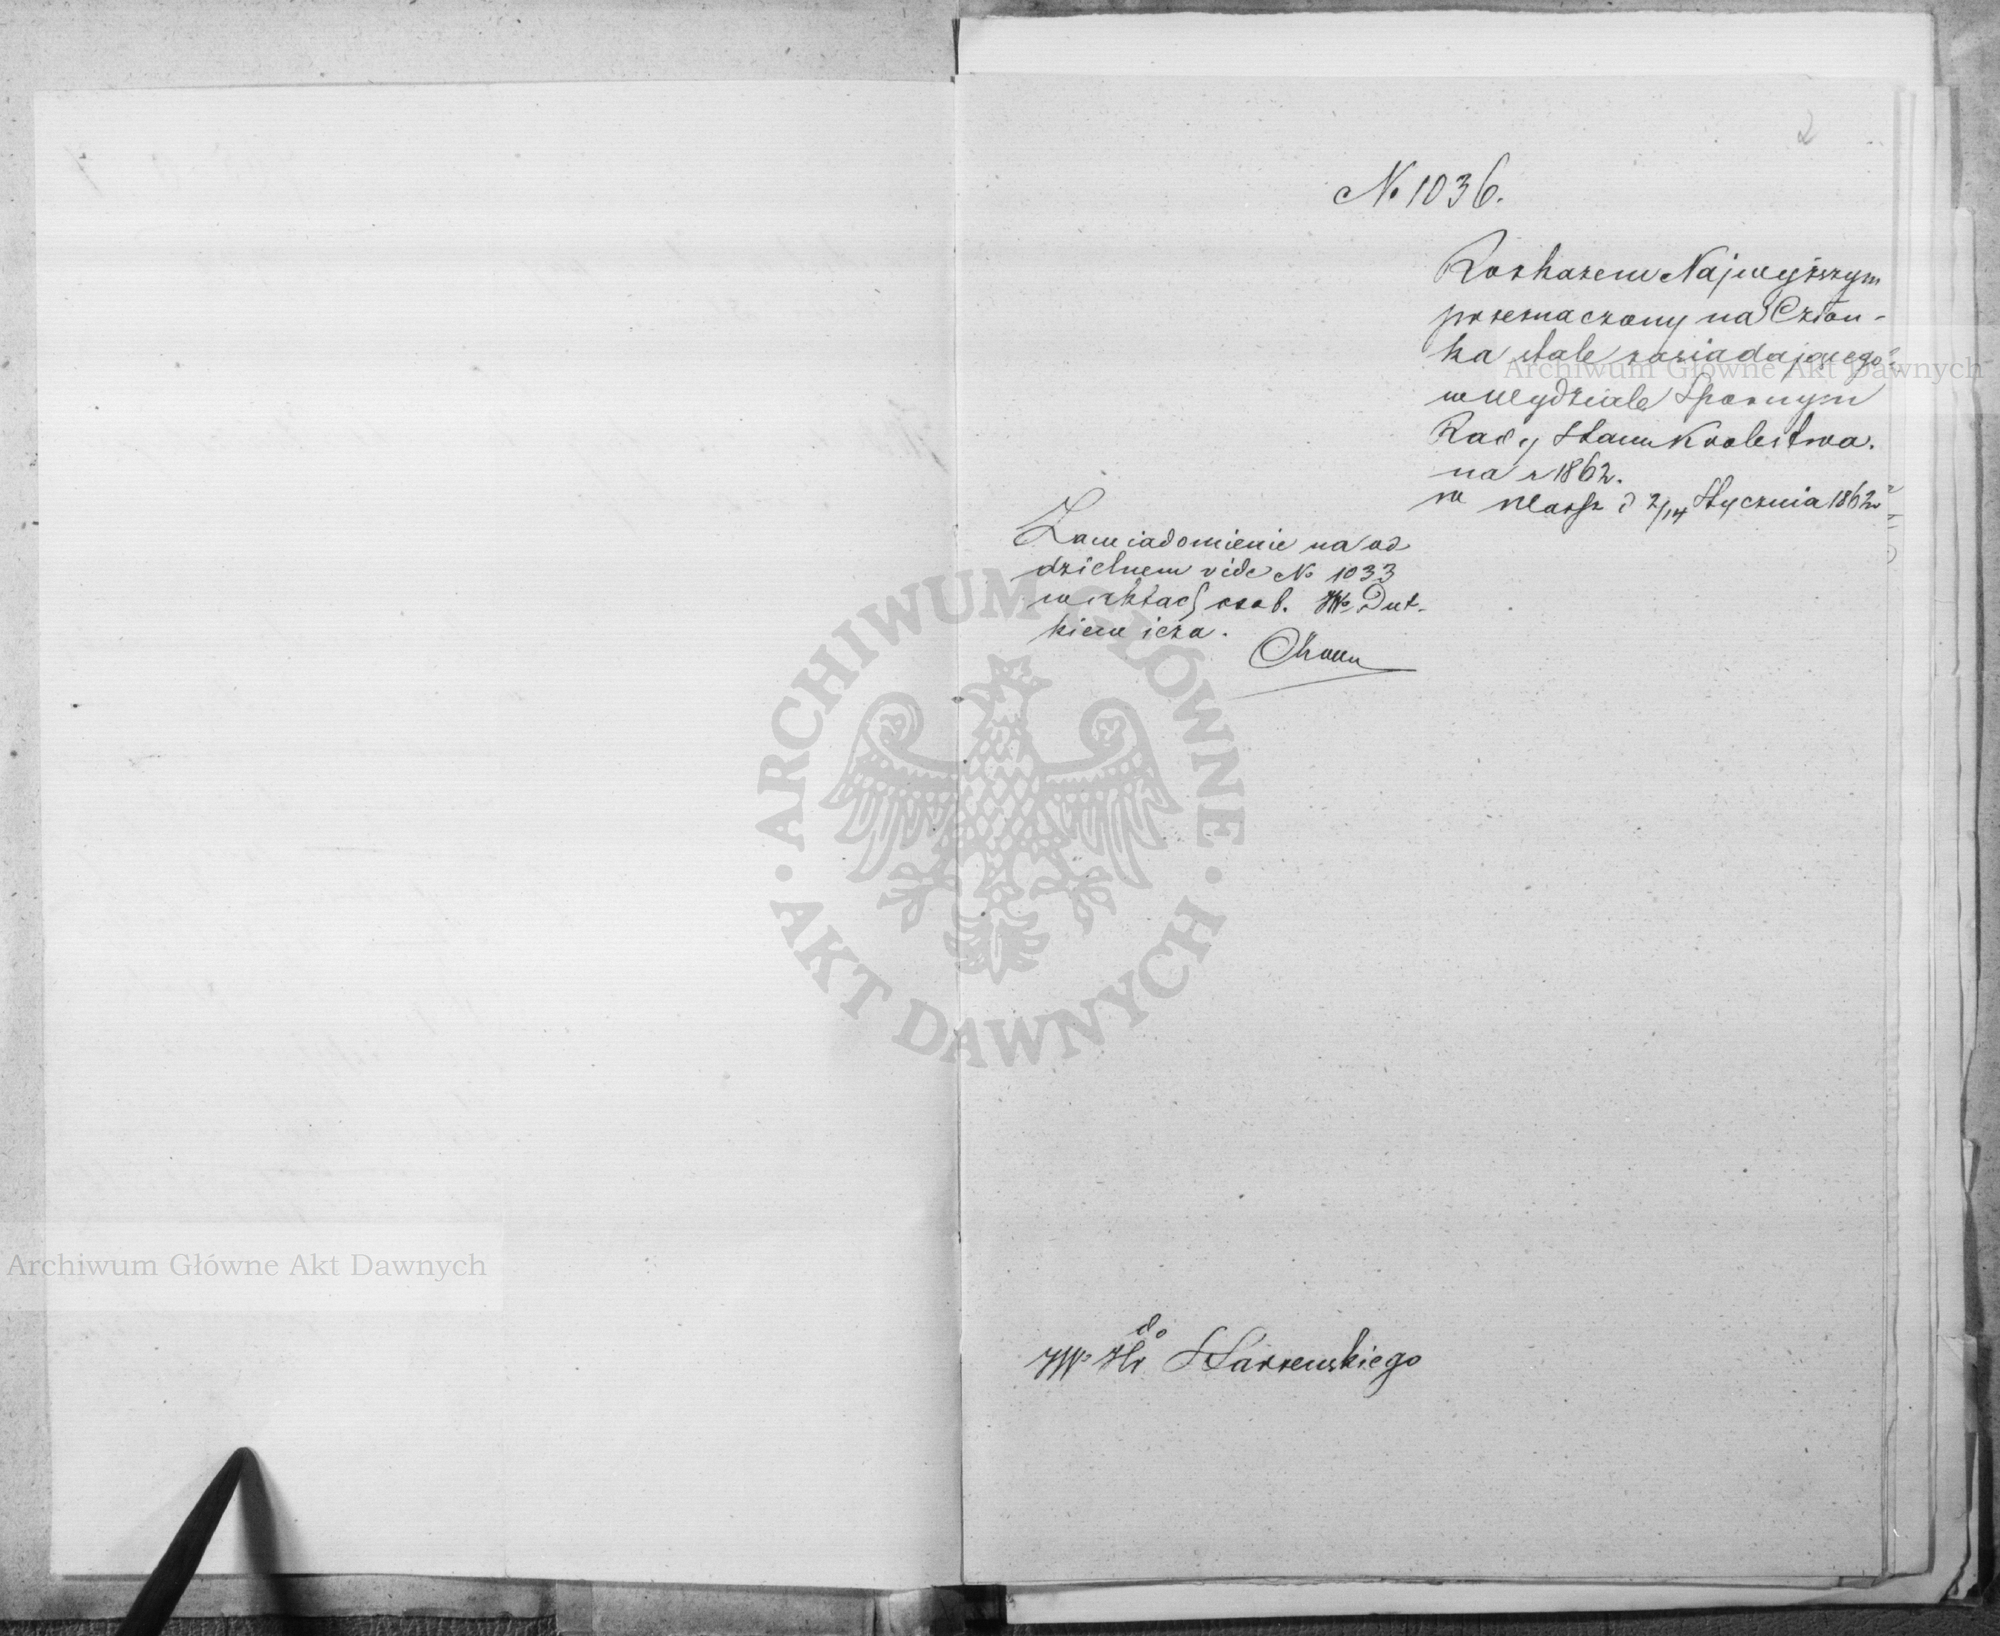 2
No 1036.
Rozkazem Najwyższym
przeznaczony na Człon-
ka stale zasiadającego
w Wydziale Spornym
Rady Stanu Królestwa.
na r 1862.
w Warsz d 2/14 Stycznia 1862
Zawiadomienie na od
dzielnem vide No 1033
w aktach osob. JW. Dut-
kiewicza.
do
JWo Hr Starzeńskiego
Archiwum Główne Akt Dawnych
ARCHIWUM GŁÓWNE
· AKT DAWNYCH ·
Archiwum Główne Akt Dawnych